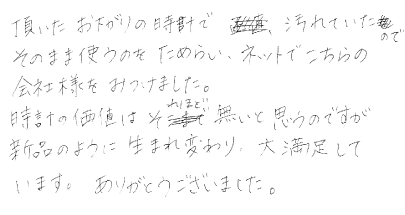 頂いた お下がりの時計で 、汚れていたので
そのまま使うのを ためらい、ネットでこちらの
会社様を みつけました。
時計の価値は それほど 無いと思うのですが
新品のように 生まれ変わり、大満足して
います。 ありがとうございました。